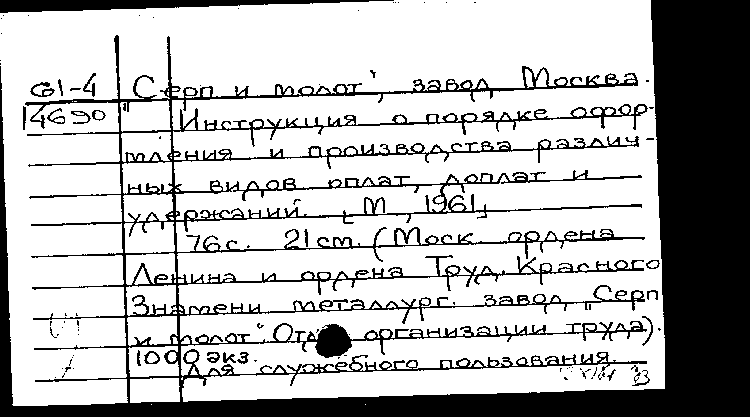 61-4 „Серп и молот", завод, Москва.
14690 Инструкция о порядке офор-
мления и производства различ-
ных видов оплат, доплат и
удержаний. [М, 1961]
76с. 21 см. (Моск. ордена
Ленина и ордена Труд. Красного
Знамени металлург. завод „Серп
и молот". Отд организации труда).
1000 экз.
Для служебного пользования.